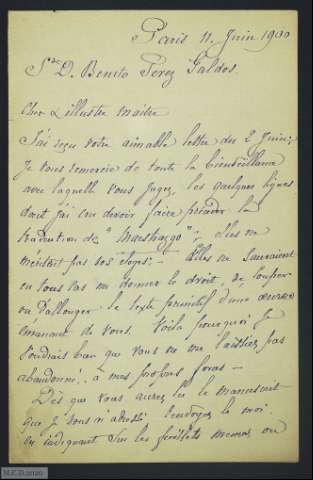 Paris 11. Juin 1900
Sr. D. Benito Pérez Galdos.
Cher & illustre maître
J'ai reçu votre aimable lettre du 2 Juin;
Je vous remercie de toute la bienveillance
avec laquelle vous jugez, les quelques lignes
dont j'ai cru devoir faire précéder la
traduction de "Maestrazgo"; elles ne
méritent pas vos éloges; Elles ne sauraient
en tous cas me donner le droit, de couper
ou d'allonger le texte primitif d'une œuvre
émanant de vous. Voilà pourquoi je
voudrais bien que vous ne me laissiez pas
abandonné, à mes propres forces
Dès que vous aurez lu le manuscrit
que je vous ai adressé renvoyez le moi
en indiquant sur les feuillets mêmes ou